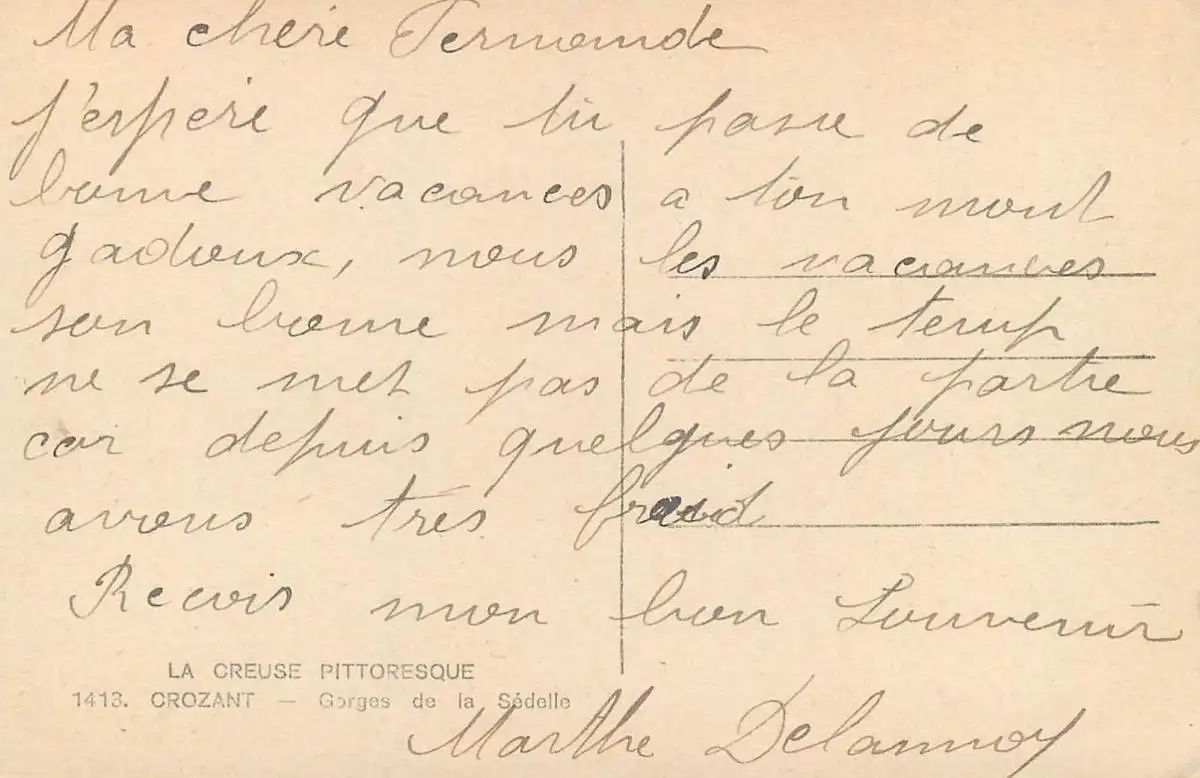 Ma chere Fernande
j'espere que tu passe de
bonne vacances a ton mont
gadoux, nous les vacances
son bonne mais le temp
ne se met pas de la partie
car depuis quelques jours nous
avons très froid
Recois mon bon Souvenir
LA CREUSE PITTORESQUE
1413. CROZANT — Gorges de la Sédelle
Marthe Delannoy